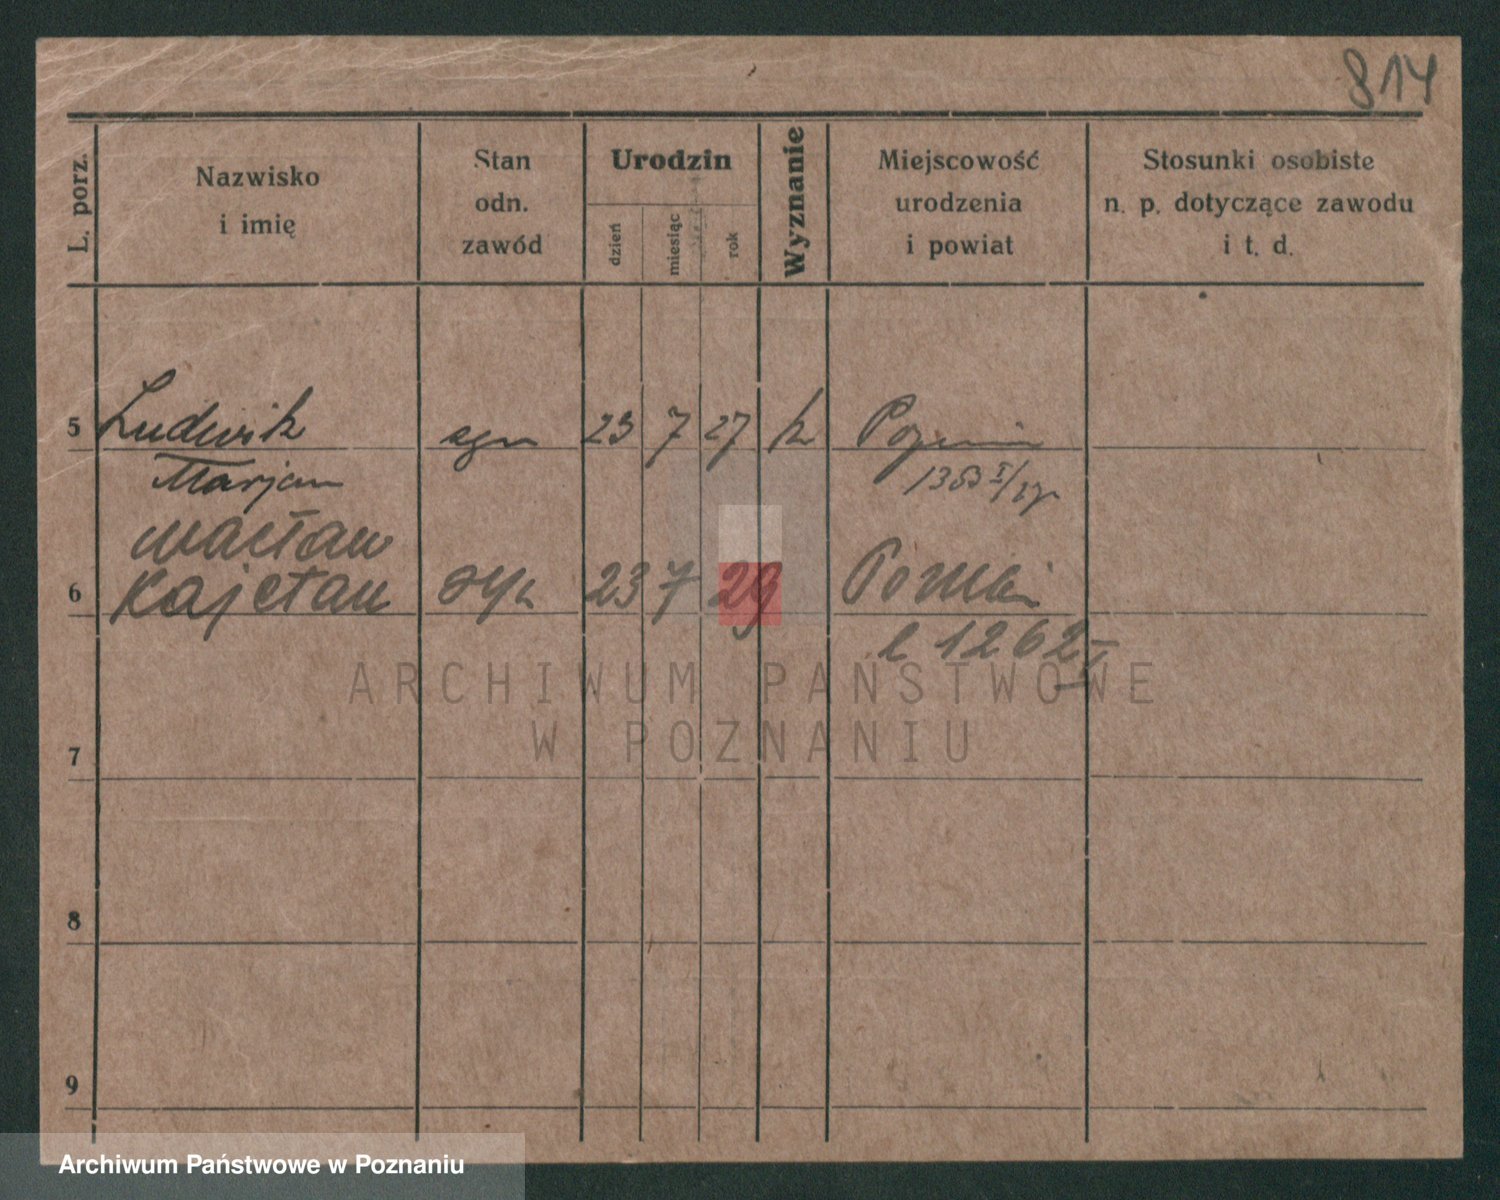 814
L. porz.
Nazwisko
i imię
Stan
odn.
zawód
Urodzin
dzień
miesiąc
rok
Wyznanie
Miejscowość
urodzenia
i powiat
Stosunki osobiste
n. p. dotyczące zawodu
i t. d.
5 Ludwik 23 7 27 k
Marjan
Wacław
6 Kajetan syn 23 7 29 Poznań
1262 I
7
8
9
ARCHIWUM PAŃSTWOWE
W POZNANIU
Archiwum Państwowe w Poznaniu